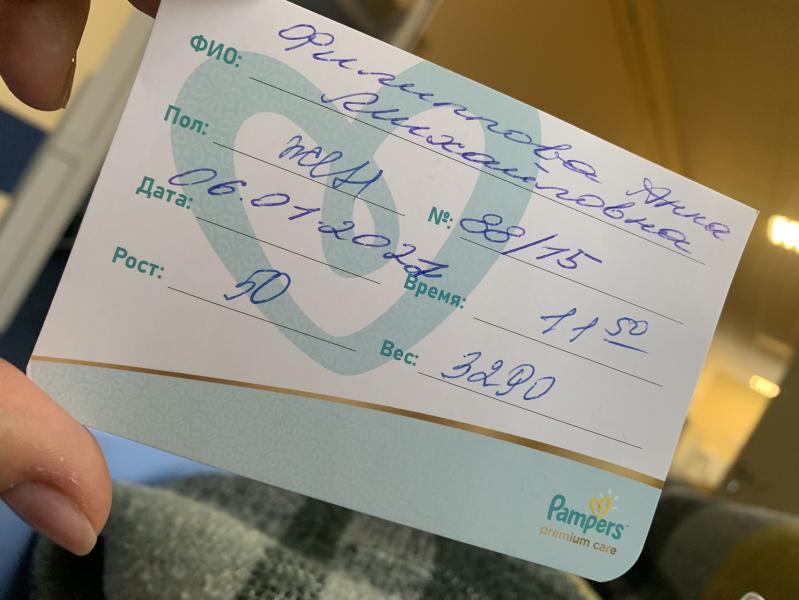 ФИО: Филиппова Анна
Михайловна
Пол: жен
№: 88/15
Дата: 06.01.2021
Время: 11 50
Рост: 50
Вес: 3290
Pampers
premium care